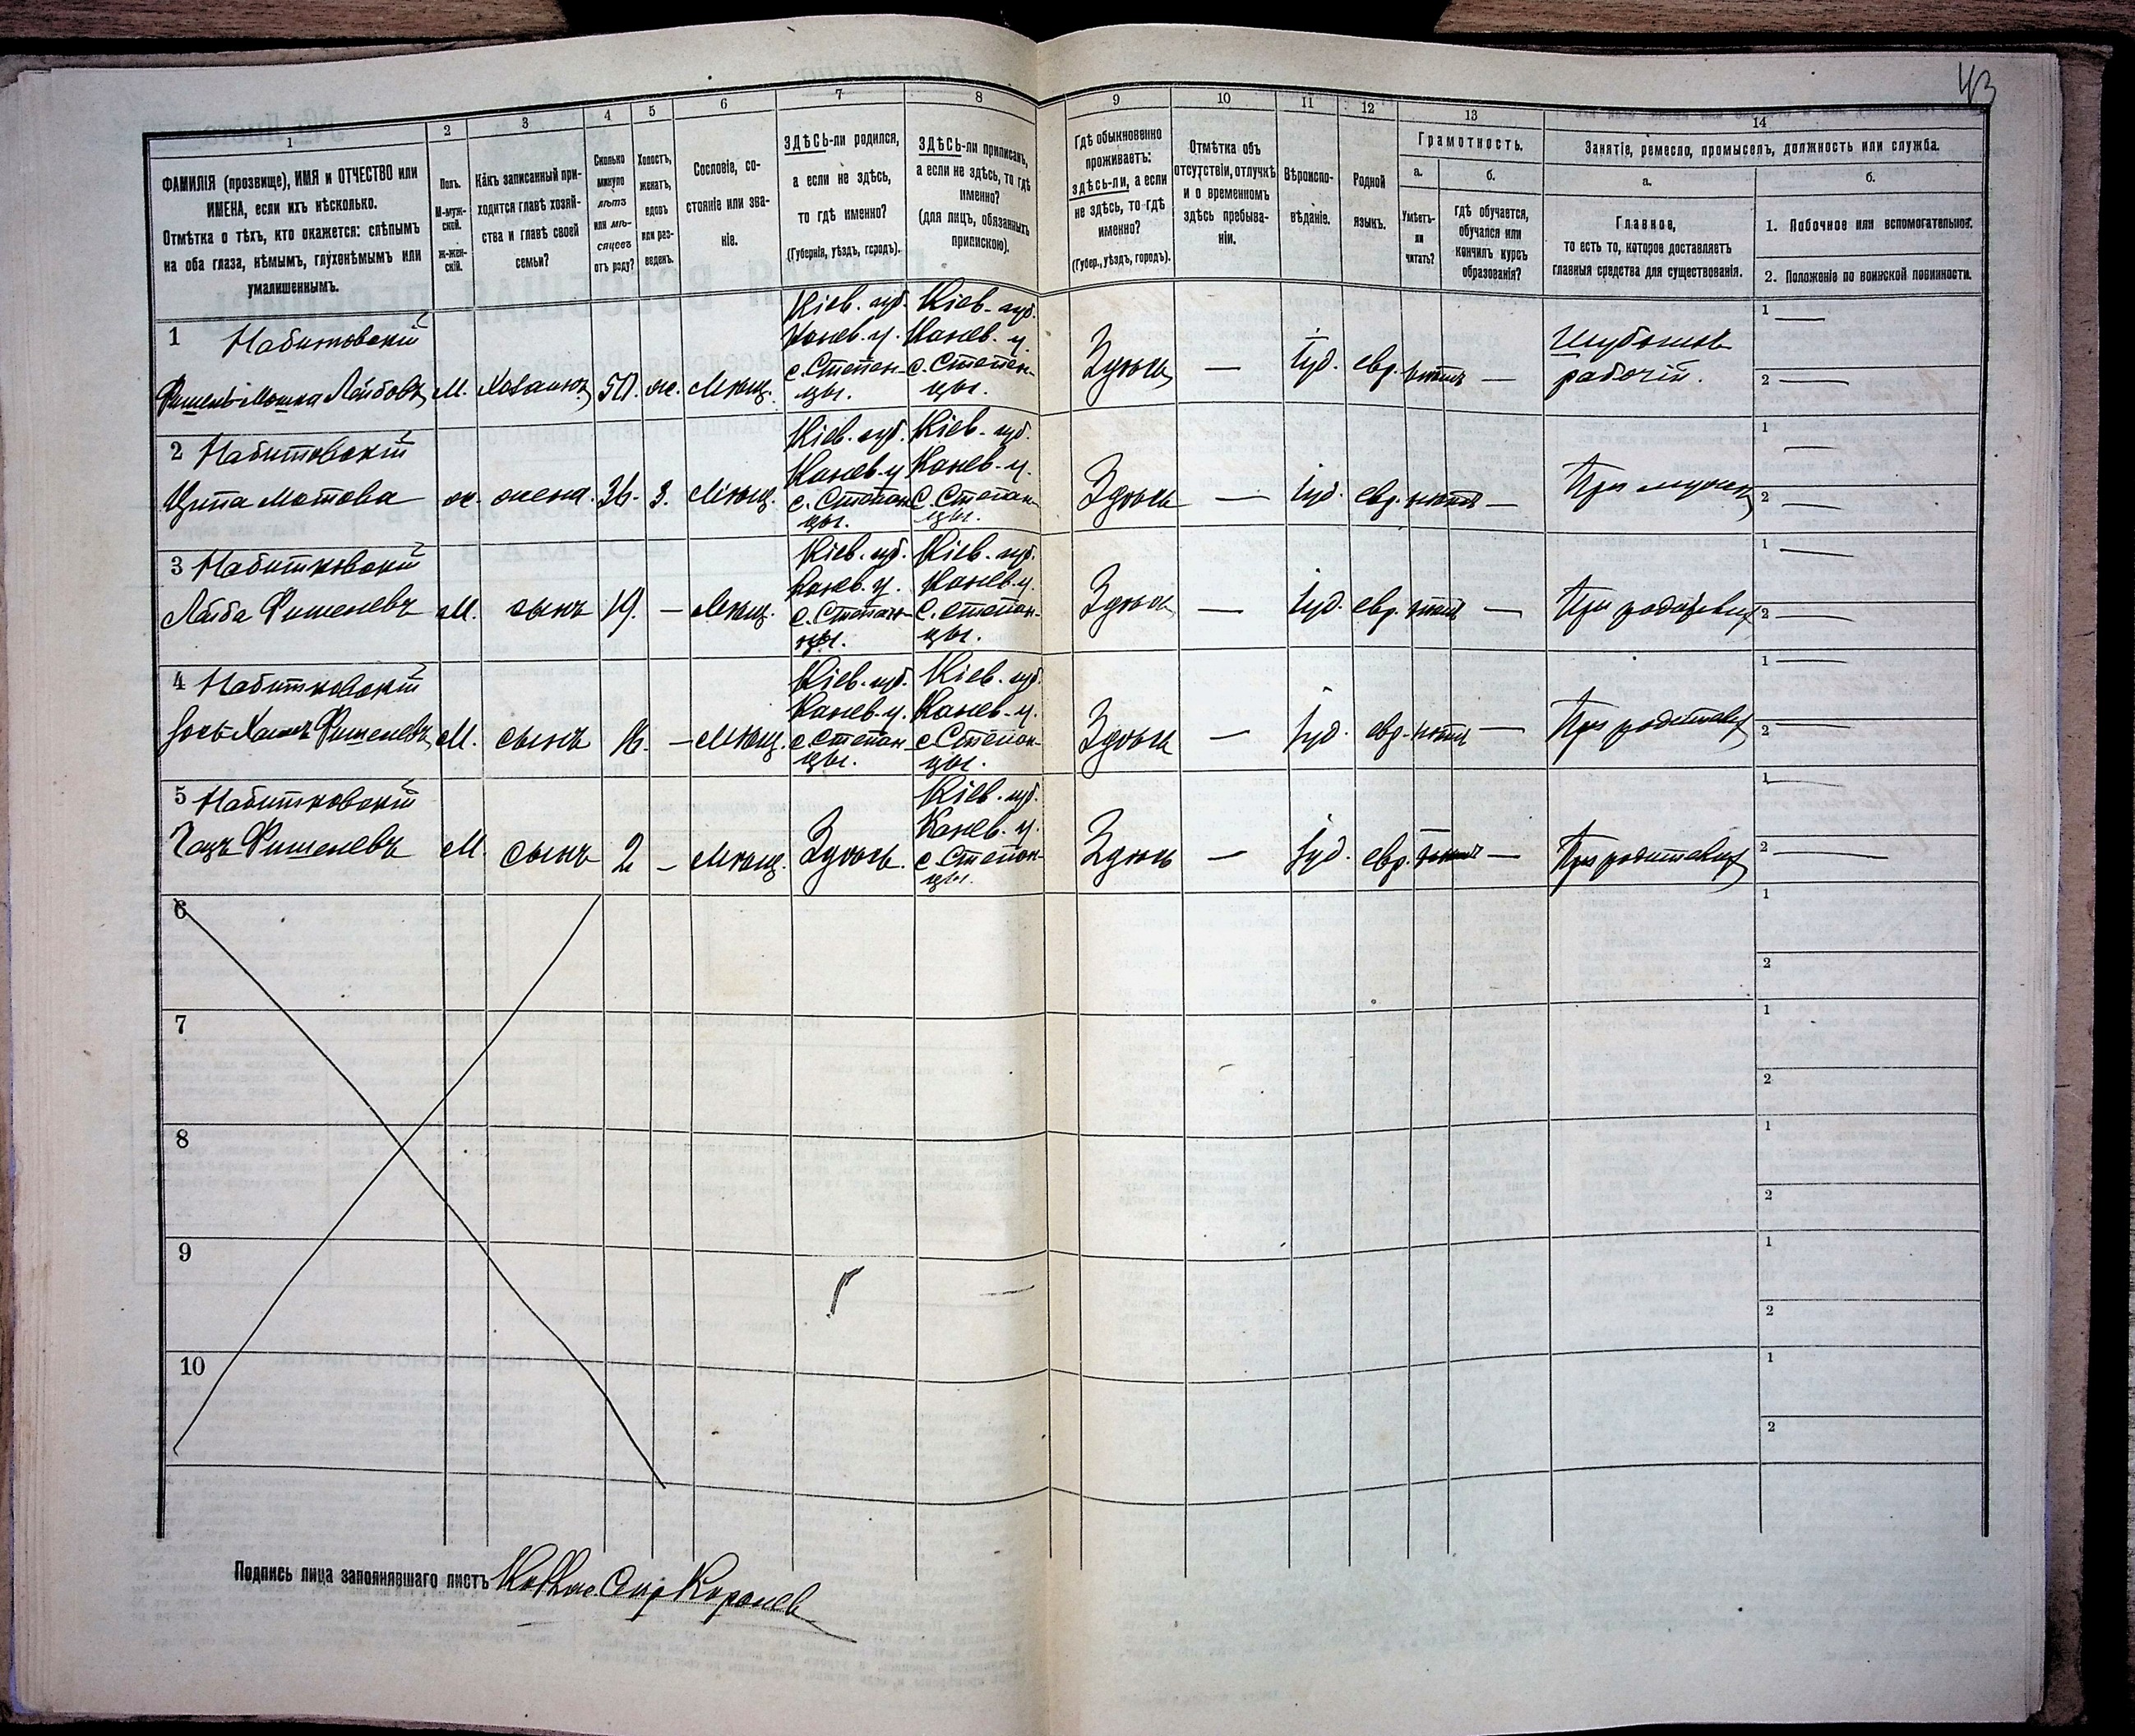 43
1
2
3
4
5
6
7
8
9
10
11
12
13
14
ФАМИЛІЯ (прозвище), ИМЯ и ОТЧЕСТВО или
ИМЕНА, если ихъ нѣсколько.
Отмѣтка о тѣхъ, кто окажется: слѣпымъ
на оба глаза, нѣмымъ, глухонѣмымъ или
умалишеннымъ.
Полъ.
М-муж-
ской.
ж-жен-
скій.
Какъ записанный при-
ходится главѣ хозяй-
ства и главѣ своей
семьи?
Сколько
минуло
лѣтъ
или мѣ-
сяцевъ
отъ роду?
Холостъ,
женатъ,
вдовъ
или раз-
веденъ.
Сословіе, со-
стояніе или зва-
ніе.
ЗДѢСЬ-ли родился,
а если не здѣсь,
то гдѣ именно?
(Губернія, уѣздъ, городъ).
ЗДѢСЬ-ли приписанъ,
а если не здѣсь, то гдѣ
именно?
(для лицъ, обязанныхъ
припискою).
Гдѣ обыкновенно
проживаетъ:
здѣсь-ли, а если
не здѣсь, то гдѣ
именно?
(Губер., уѣздъ, городъ).
Отмѣтка объ
отсутствіи, отлучкѣ
и о временномъ
здѣсь пребыва-
ніи.
Вѣроиспо-
вѣданіе.
Родной
языкъ.
Грамотность.
а.
Умѣетъ-
ли
читать?
б.
гдѣ обучается,
обучался или
кончилъ курсъ
образованія?
Занятіе, ремесло, промыселъ, должность или служба.
а.
Главное,
то есть то, которое доставляетъ
главныя средства для существованія.
б.
1. Побочное или вспомогательное.
2. Положеніе по воинской повинности.
1
Фишель-Мошка Лейбовъ М. Хозяинъ 50. ж. Мѣщ.
Кіев. губ. Канев. у. с. Степан-цы.
Кіев. губ. Канев. у. с. Степан-цы.
Здѣсь — Іуд. евр. —
рабочій.
1 —
2 —
2
Ципа Мотова ж. жена. 36. З. Мѣщ.
Кіев. губ. Канев. у. с. Степан-цы.
Кіев. губ. Канев. у. с. Степан-цы.
Здѣсь — Іуд. евр. нѣтъ —
При мужѣ
1 —
2 —
3 Набитковскій
Лейба Фишелевъ М. сынъ 19. — Мѣщ.
Кіев. губ. Канев. у. с. Степан-цы.
Кіев. губ. Канев. у. с. Степан-цы.
Здѣсь — Іуд. евр. —
При родителяхъ
1 —
2 —
4 Набитковскій
Фишелевъ М. сынъ 16. — Мѣщ.
Кіев. губ. Канев. у. с. Степан-цы.
Кіев. губ. Канев. у. с. Степан-цы.
Здѣсь — Іуд. евр. нѣтъ —
При родителяхъ
1 —
2 —
5 Набитковскій
Фишелевъ М. сынъ 2 — Мѣщ. Здѣсь.
Кіев. губ. Канев. у. с. Степан-цы.
Здѣсь — Іуд. евр. —
При родителяхъ
1 —
2 —
6
1
2
7
1
2
8
1
2
9
1
2
10
1
2
Подпись лица заполнявшаго листъ